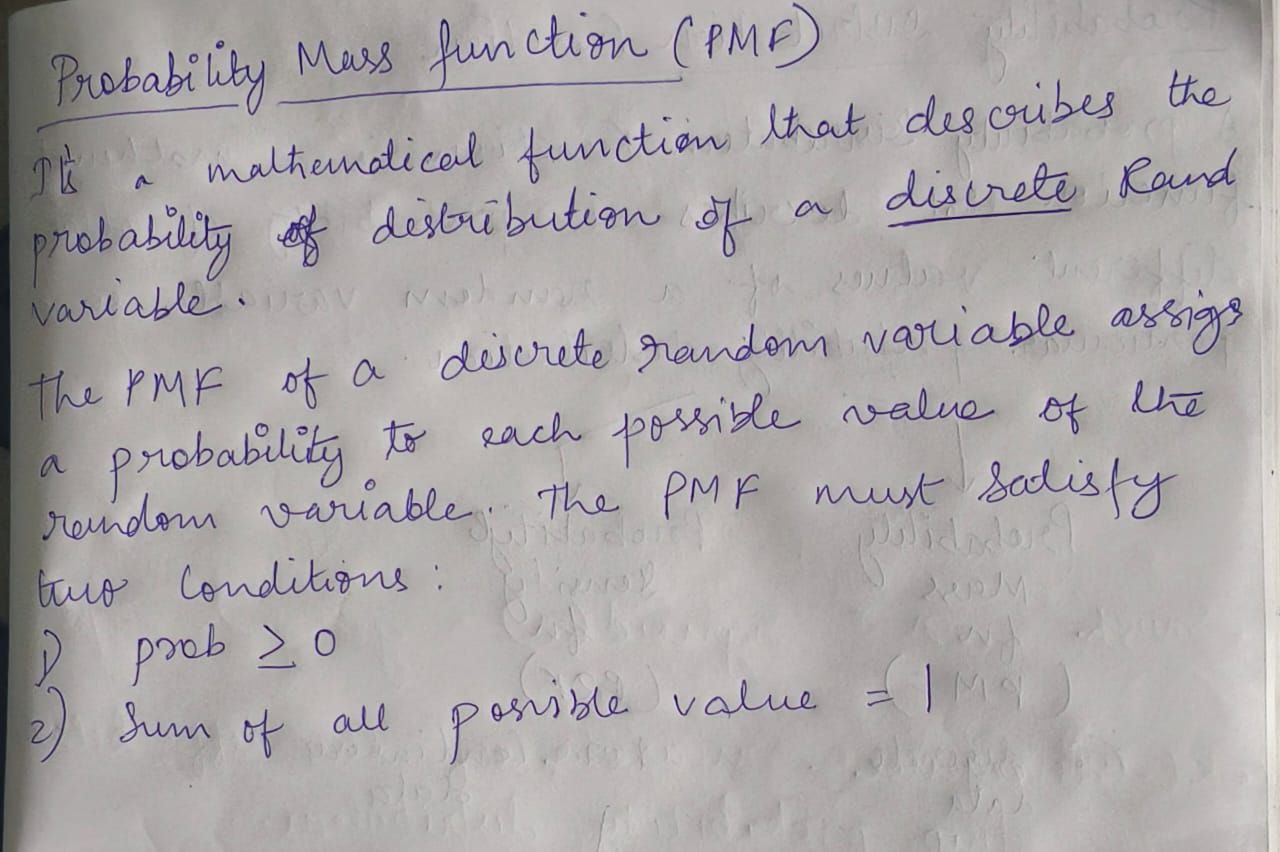 Probability Mass function (PMF)
It is a mathematical function that describes the
probability distribution of a discrete Rand
variable.
The PMF of a discrete random variable assigs
a probability to each possible value of the
random variable. The PMF must satisfy
two Conditions:
1) prob ≥ 0
2) Sum of all possible value = 1